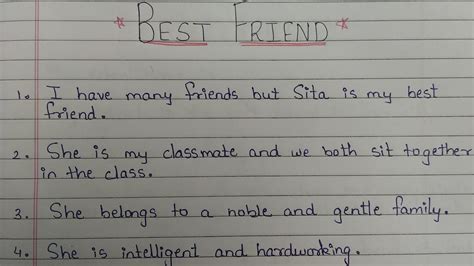 * BEST FRIEND *
1. I have many friends but Sita is my best
friend.
2. She is my classmate and we both sit together
in the class.
3. She belongs to a noble and gentle family.
4. She is intelligent and hardworking.